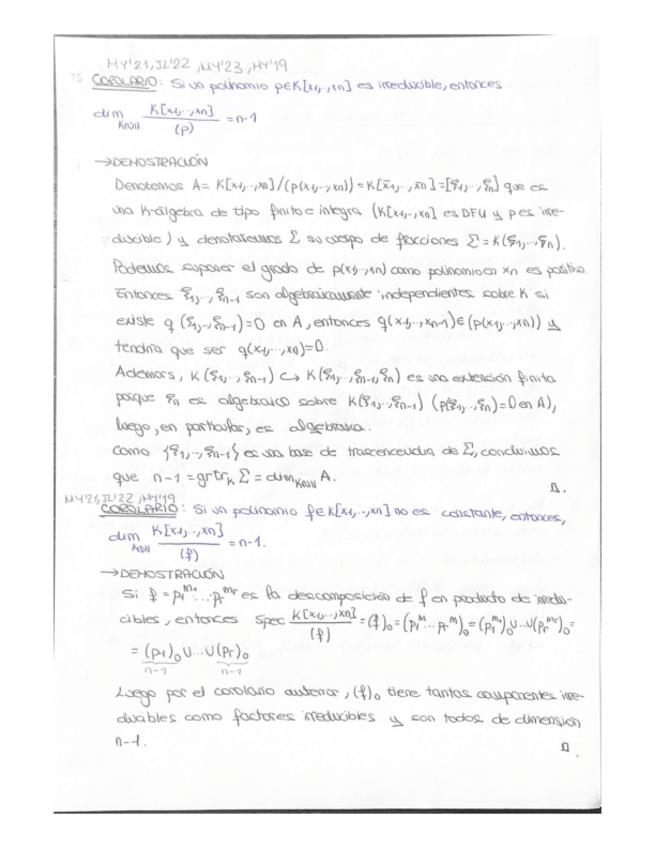 MY'21, JL'22, MY'23, MY'19
75 COROLARIO: Si un polinomio p∈K[x1,..,xn] es irreducible, entonces
dim_Krull K[x1,..,xn]/(p) = n-1
→DEMOSTRACIÓN
Denotemos A = K[x1,..,xn]/(p(x1,..,xn)) = K[x̄1,..,x̄n] = [ξ1,..,ξn] que es
una K-álgebra de tipo finito e íntegra (K[x1,..,xn] es DFU y p es irre-
ducible) y denotaremos Σ su cuerpo de fracciones Σ = K(ξ1,..,ξn).
Podemos suponer el grado de p(x1,..,xn) como polinomio en xn es positivo.
Entonces ξ1,..,ξn-1 son algebraicamente independientes sobre K si
existe q (ξ1,..,ξn-1)=0 en A, entonces q(x1,..,xn-1)∈(p(x1,..,xn)) y
tendría que ser q(x1,..,xn)=0.
Además, K(ξ1,..,ξn-1) ↪ K(ξ1,..,ξn-1,ξn) es una extensión finita
porque ξn es algebraico sobre K(ξ1,..,ξn-1) (p(ξ1,..,ξn)=0 en A),
luego, en particular, es algebraica.
Como {ξ1,..,ξn-1} es una base de trascendencia de Σ, concluimos
que n-1 = grtr_K Σ = dim_Krull A.
MY'21, JL'22, MY'19
COROLARIO: Si un polinomio f∈K[x1,..,xn] no es constante, entonces,
dim_Krull K[x1,..,xn]/(f) = n-1.
→DEMOSTRACIÓN
Si f = p1^m1...pr^mr es la descomposición de f en producto de irredu-
cibles, entonces Spec K[x1,..,xn]/(f) = (f)₀ = (p1^m...pr^m)₀ = (p1^m1)₀ ∪...∪(pr^mr)₀ =
= (p1)₀ ∪...∪(pr)₀
n-1 n-1
Luego por el corolario anterior, (f)₀ tiene tantas componentes irre-
ducibles como factores irreducibles y son todos de dimensión
n-1.